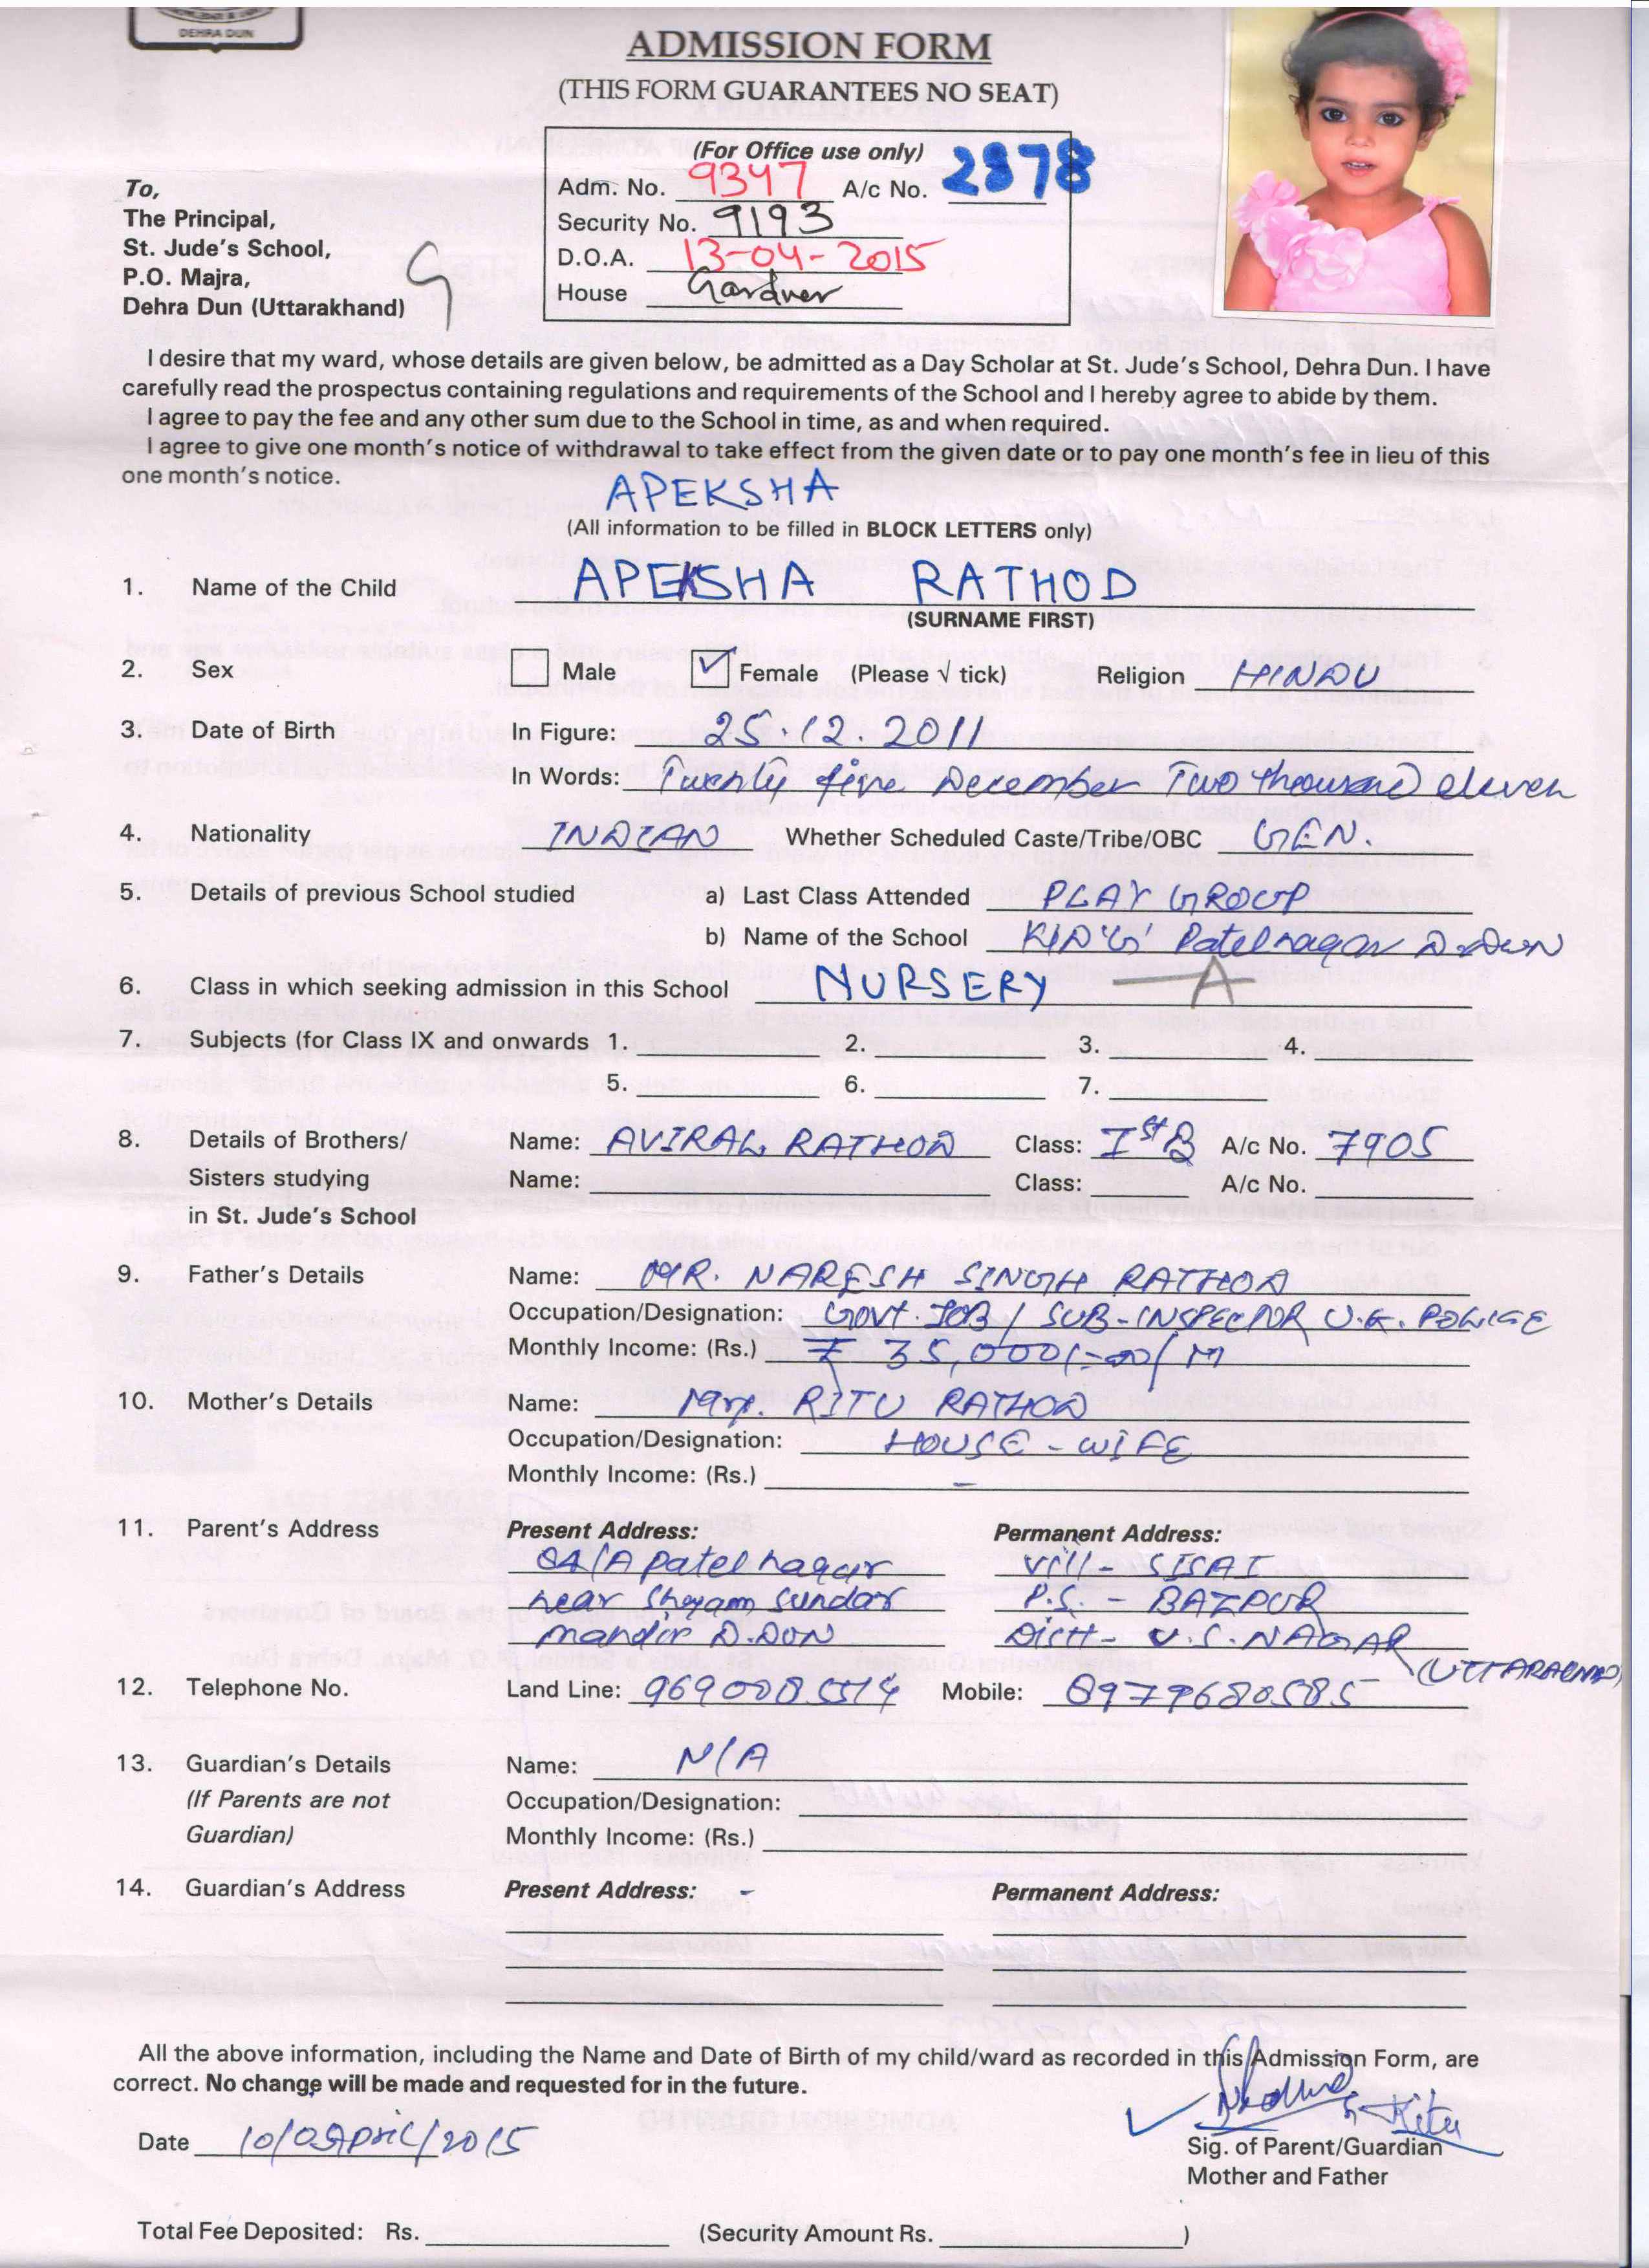 DEHRA DUN
ADMISSION FORM
(THIS FORM GUARANTEES NO SEAT)
(For Office use only)
Adm. No. 9347 A/c No. 2878
Security No. 9193
D.O.A. 13-04-2015
House Gardner
To,
The Principal,
St. Jude's School,
P.O. Majra,
Dehra Dun (Uttarakhand)
I desire that my ward, whose details are given below, be admitted as a Day Scholar at St. Jude's School, Dehra Dun. I have
carefully read the prospectus containing regulations and requirements of the School and I hereby agree to abide by them.
I agree to pay the fee and any other sum due to the School in time, as and when required.
I agree to give one month's notice of withdrawal to take effect from the given date or to pay one month's fee in lieu of this
one month's notice.
APEKSHA
(All information to be filled in BLOCK LETTERS only)
1. Name of the Child APEKSHA RATHOD
(SURNAME FIRST)
2. Sex Male Female (Please √ tick) Religion HINDU
3. Date of Birth In Figure: 25.12.2011
In Words: Twenty five December Two thousand eleven
4. Nationality INDIAN Whether Scheduled Caste/Tribe/OBC GEN.
5. Details of previous School studied a) Last Class Attended PLAY GROUP
b) Name of the School KID'G' Patel nagar D.Dun
6. Class in which seeking admission in this School NURSERY — A
7. Subjects (for Class IX and onwards 1. 2. 3. 4.
5. 6. 7.
8. Details of Brothers/ Name: AVIRAL RATHOD Class: Ist B A/c No. 7905
Sisters studying Name: Class: A/c No.
in St. Jude's School
9. Father's Details Name: MR. NARESH SINGH RATHOD
Occupation/Designation: GOVT. JOB / SUB-INSPECTOR U.K. POLICE
Monthly Income: (Rs.) ₹ 35,000/-00/M
10. Mother's Details Name: Mrs. RITU RATHOD
Occupation/Designation: HOUSE-WIFE
Monthly Income: (Rs.) -
11. Parent's Address Present Address: Permanent Address:
84/A patel nagar Vill- SISAI
near Shyam Sundar P.S. - BAZPUR
mandir D.DUN Distt- U.S.NAGAR
(UTTARAKHAND)
12. Telephone No. Land Line: 9690085514 Mobile: 8979680585
13. Guardian's Details Name: N/A
(If Parents are not Occupation/Designation:
Guardian) Monthly Income: (Rs.)
14. Guardian's Address Present Address: - Permanent Address:
All the above information, including the Name and Date of Birth of my child/ward as recorded in this Admission Form, are
correct. No change will be made and requested for in the future.
Date 10/April/2015 Ritu
Sig. of Parent/Guardian
Mother and Father
Total Fee Deposited: Rs. (Security Amount Rs. )